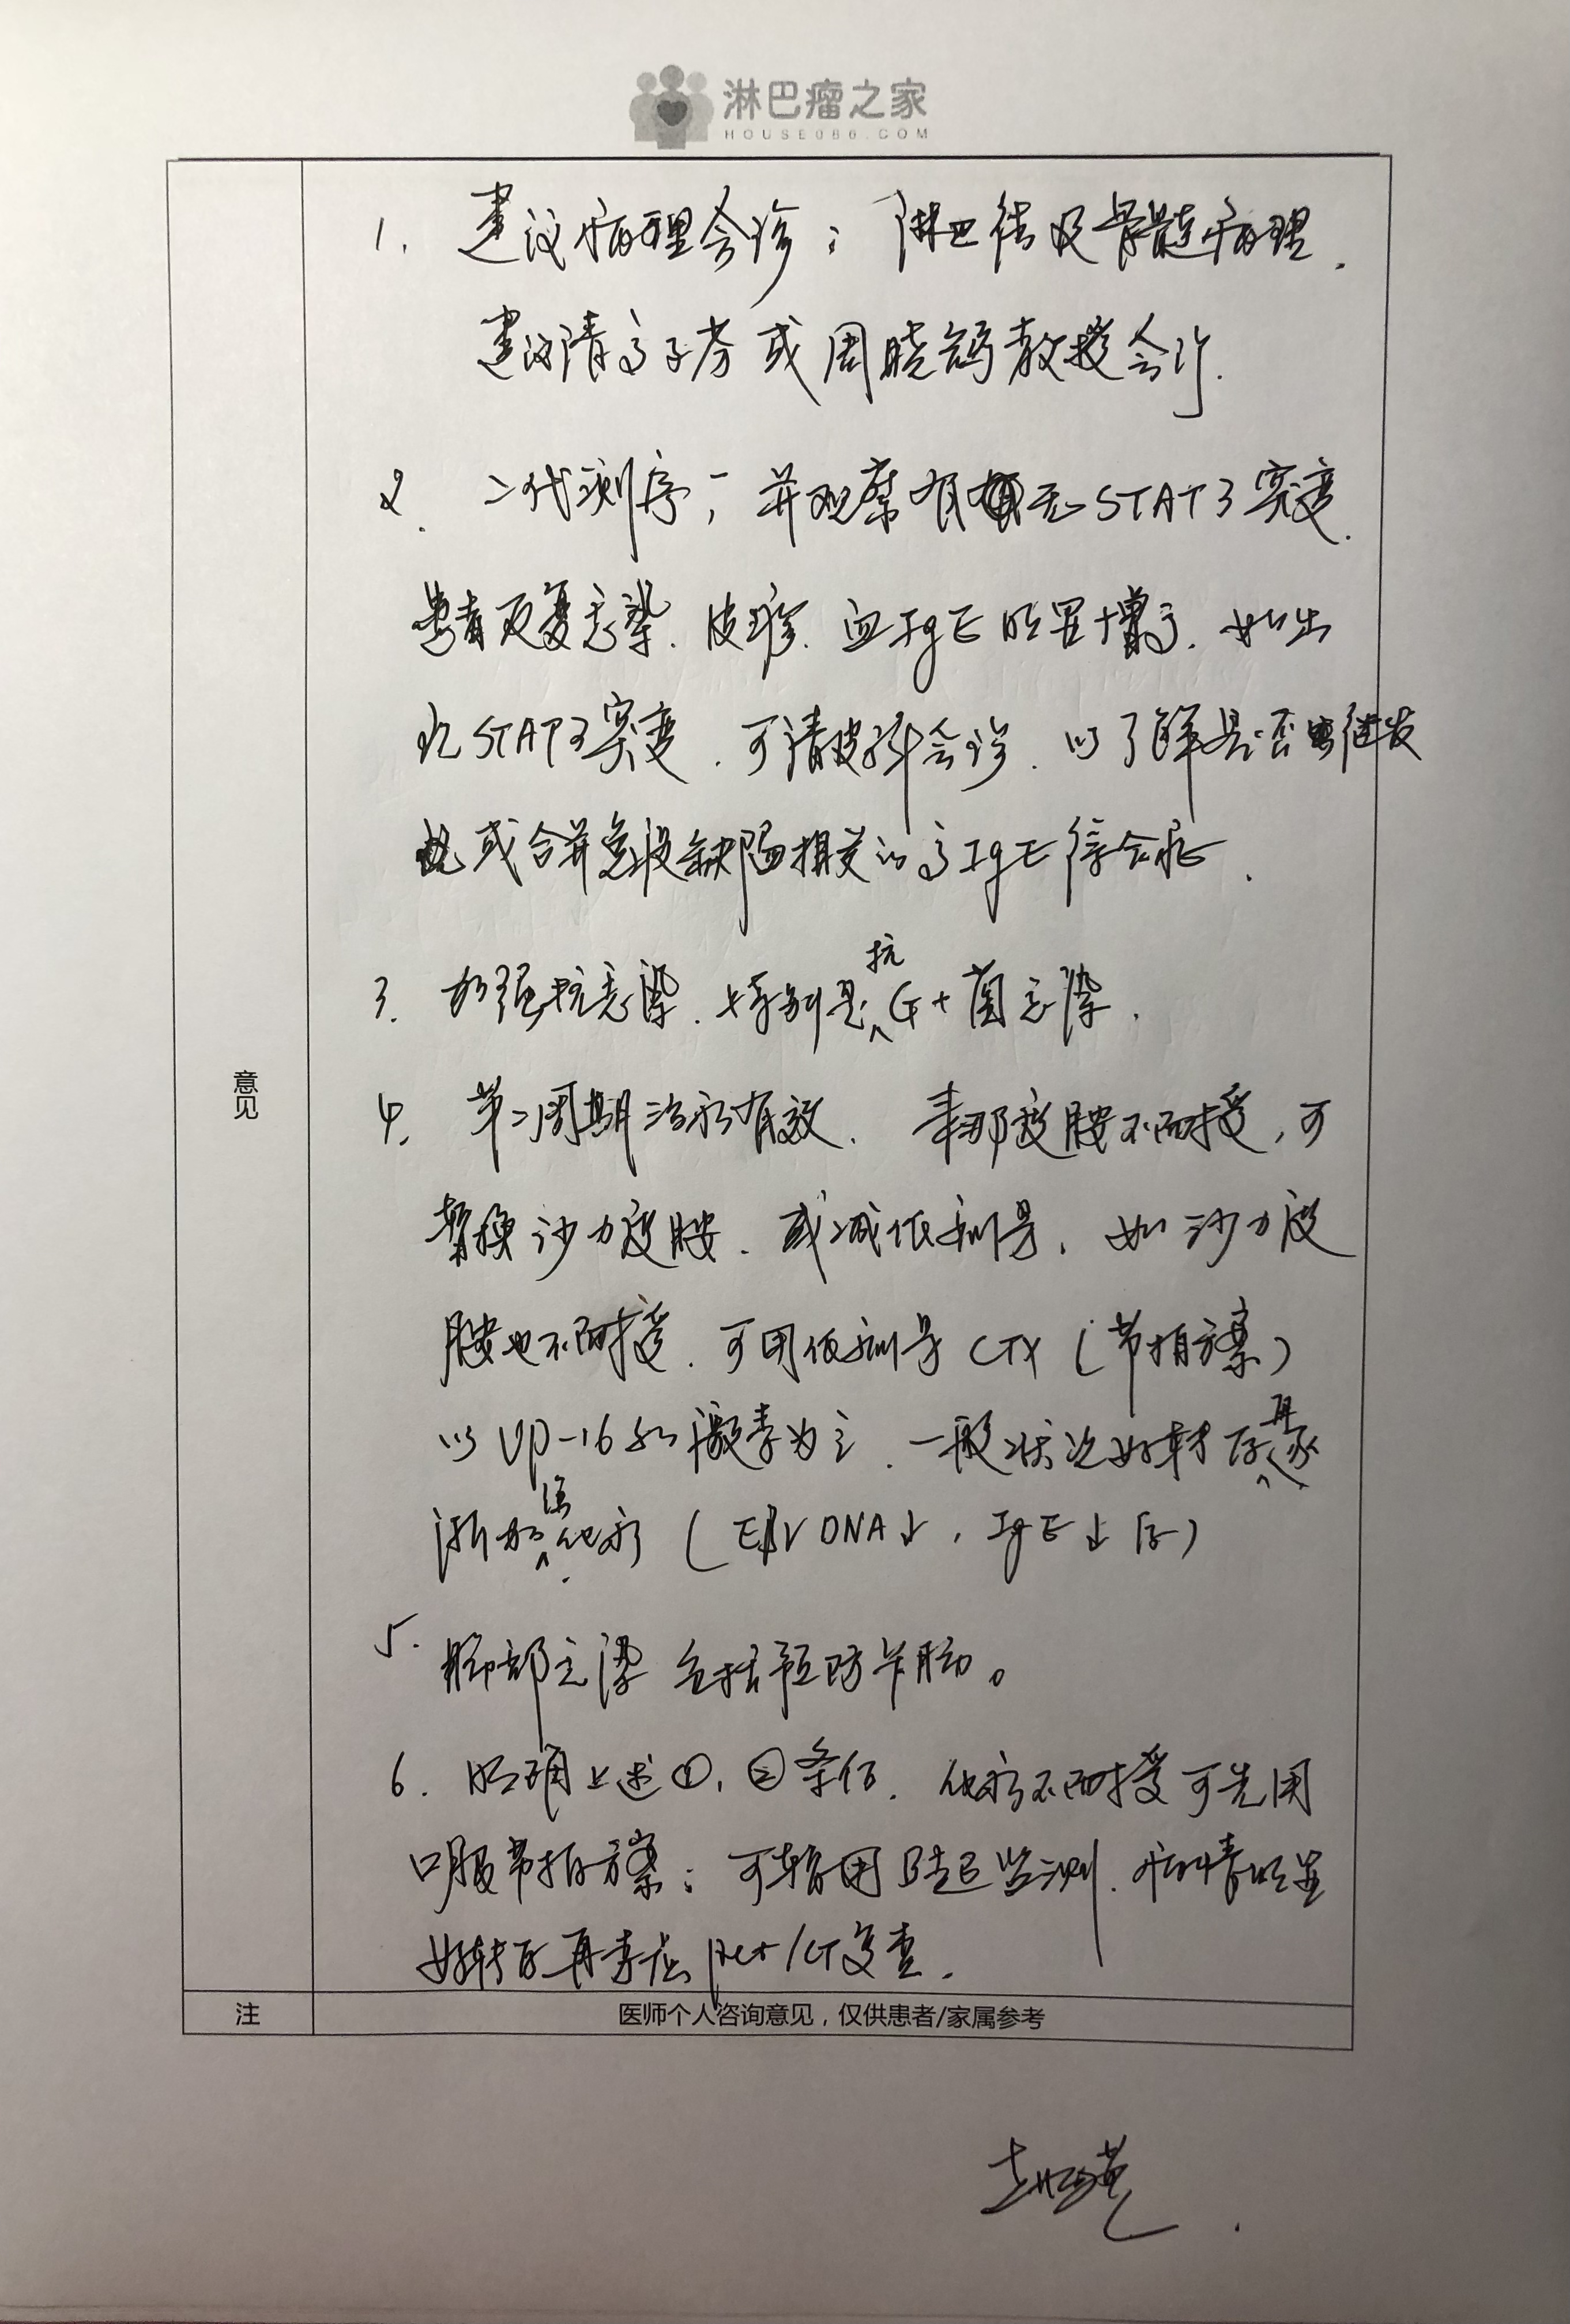 淋巴瘤之家
HOUSE086.COM
1. 建议病理会诊：淋巴结及骨髓病理.
建议请高子芬或周晓鸽教授会诊.
2. 二代测序，并观察有无STAT3突变.
患者反复感染.皮疹.血IgE明显增高.如出
现STAT3突变.可请皮科会诊.以了解是否继发
或合并免疫缺陷相关的高IgE综合征.
3. 加强抗感染.特别是抗G+菌感染.
意见
4. 第二周期治疗有效.来那度胺不耐受,可
替换沙力度胺.或减低剂量.如沙力度
胺也不耐受.可用低剂量CTX(节拍方案)
以VP-16和激素为主.一般状况好转后再逐
渐加强化疗(EBV DNA↓,IgE↓后)
5. 肺部感染包括预防卡肺。
6. 明确上述①,②条后.化疗不耐受可先用
口服节拍方案;可暂用B超监测.病情明显
好转后再考虑pet/CT复查.
注 医师个人咨询意见，仅供患者/家属参考